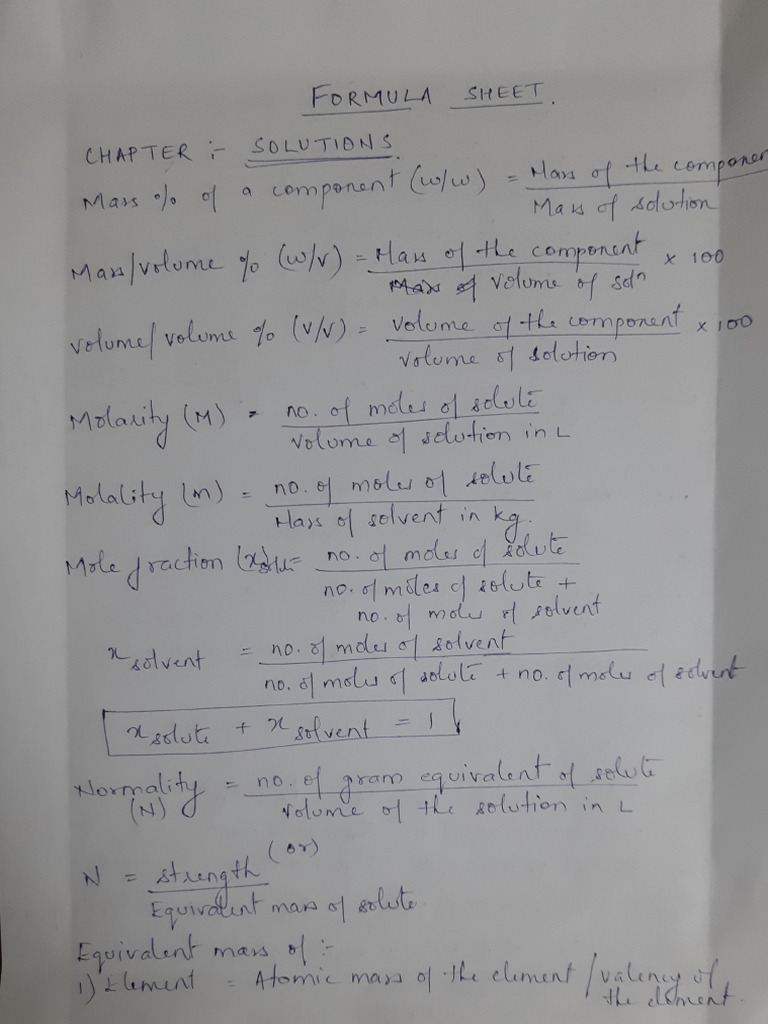 FORMULA SHEET.
CHAPTER :- SOLUTIONS.
Mass % of a component (w/w) = Mass of the componen
Mass of solution
Mass/volume % (w/v) = Mass of the component × 100
Mass of volume of soln
volume/volume % (v/v) = volume of the component × 100
volume of solution
Molarity (M) = no. of moles of solute
volume of solution in L
Molality (m) = no. of moles of solute
Mass of solvent in kg.
Mole fraction (x)solute = no. of moles of solute
no. of moles of solute +
no. of moles of solvent
x solvent = no. of moles of solvent
no. of moles of solute + no. of moles of solvent
x solute + x solvent = 1
Normality = no. of gram equivalent of solute
(N) volume of the solution in L
(or)
N = strength
Equivalent mass of solute
Equivalent mass of :-
1) Element = Atomic mass of the element / valency of
the element.